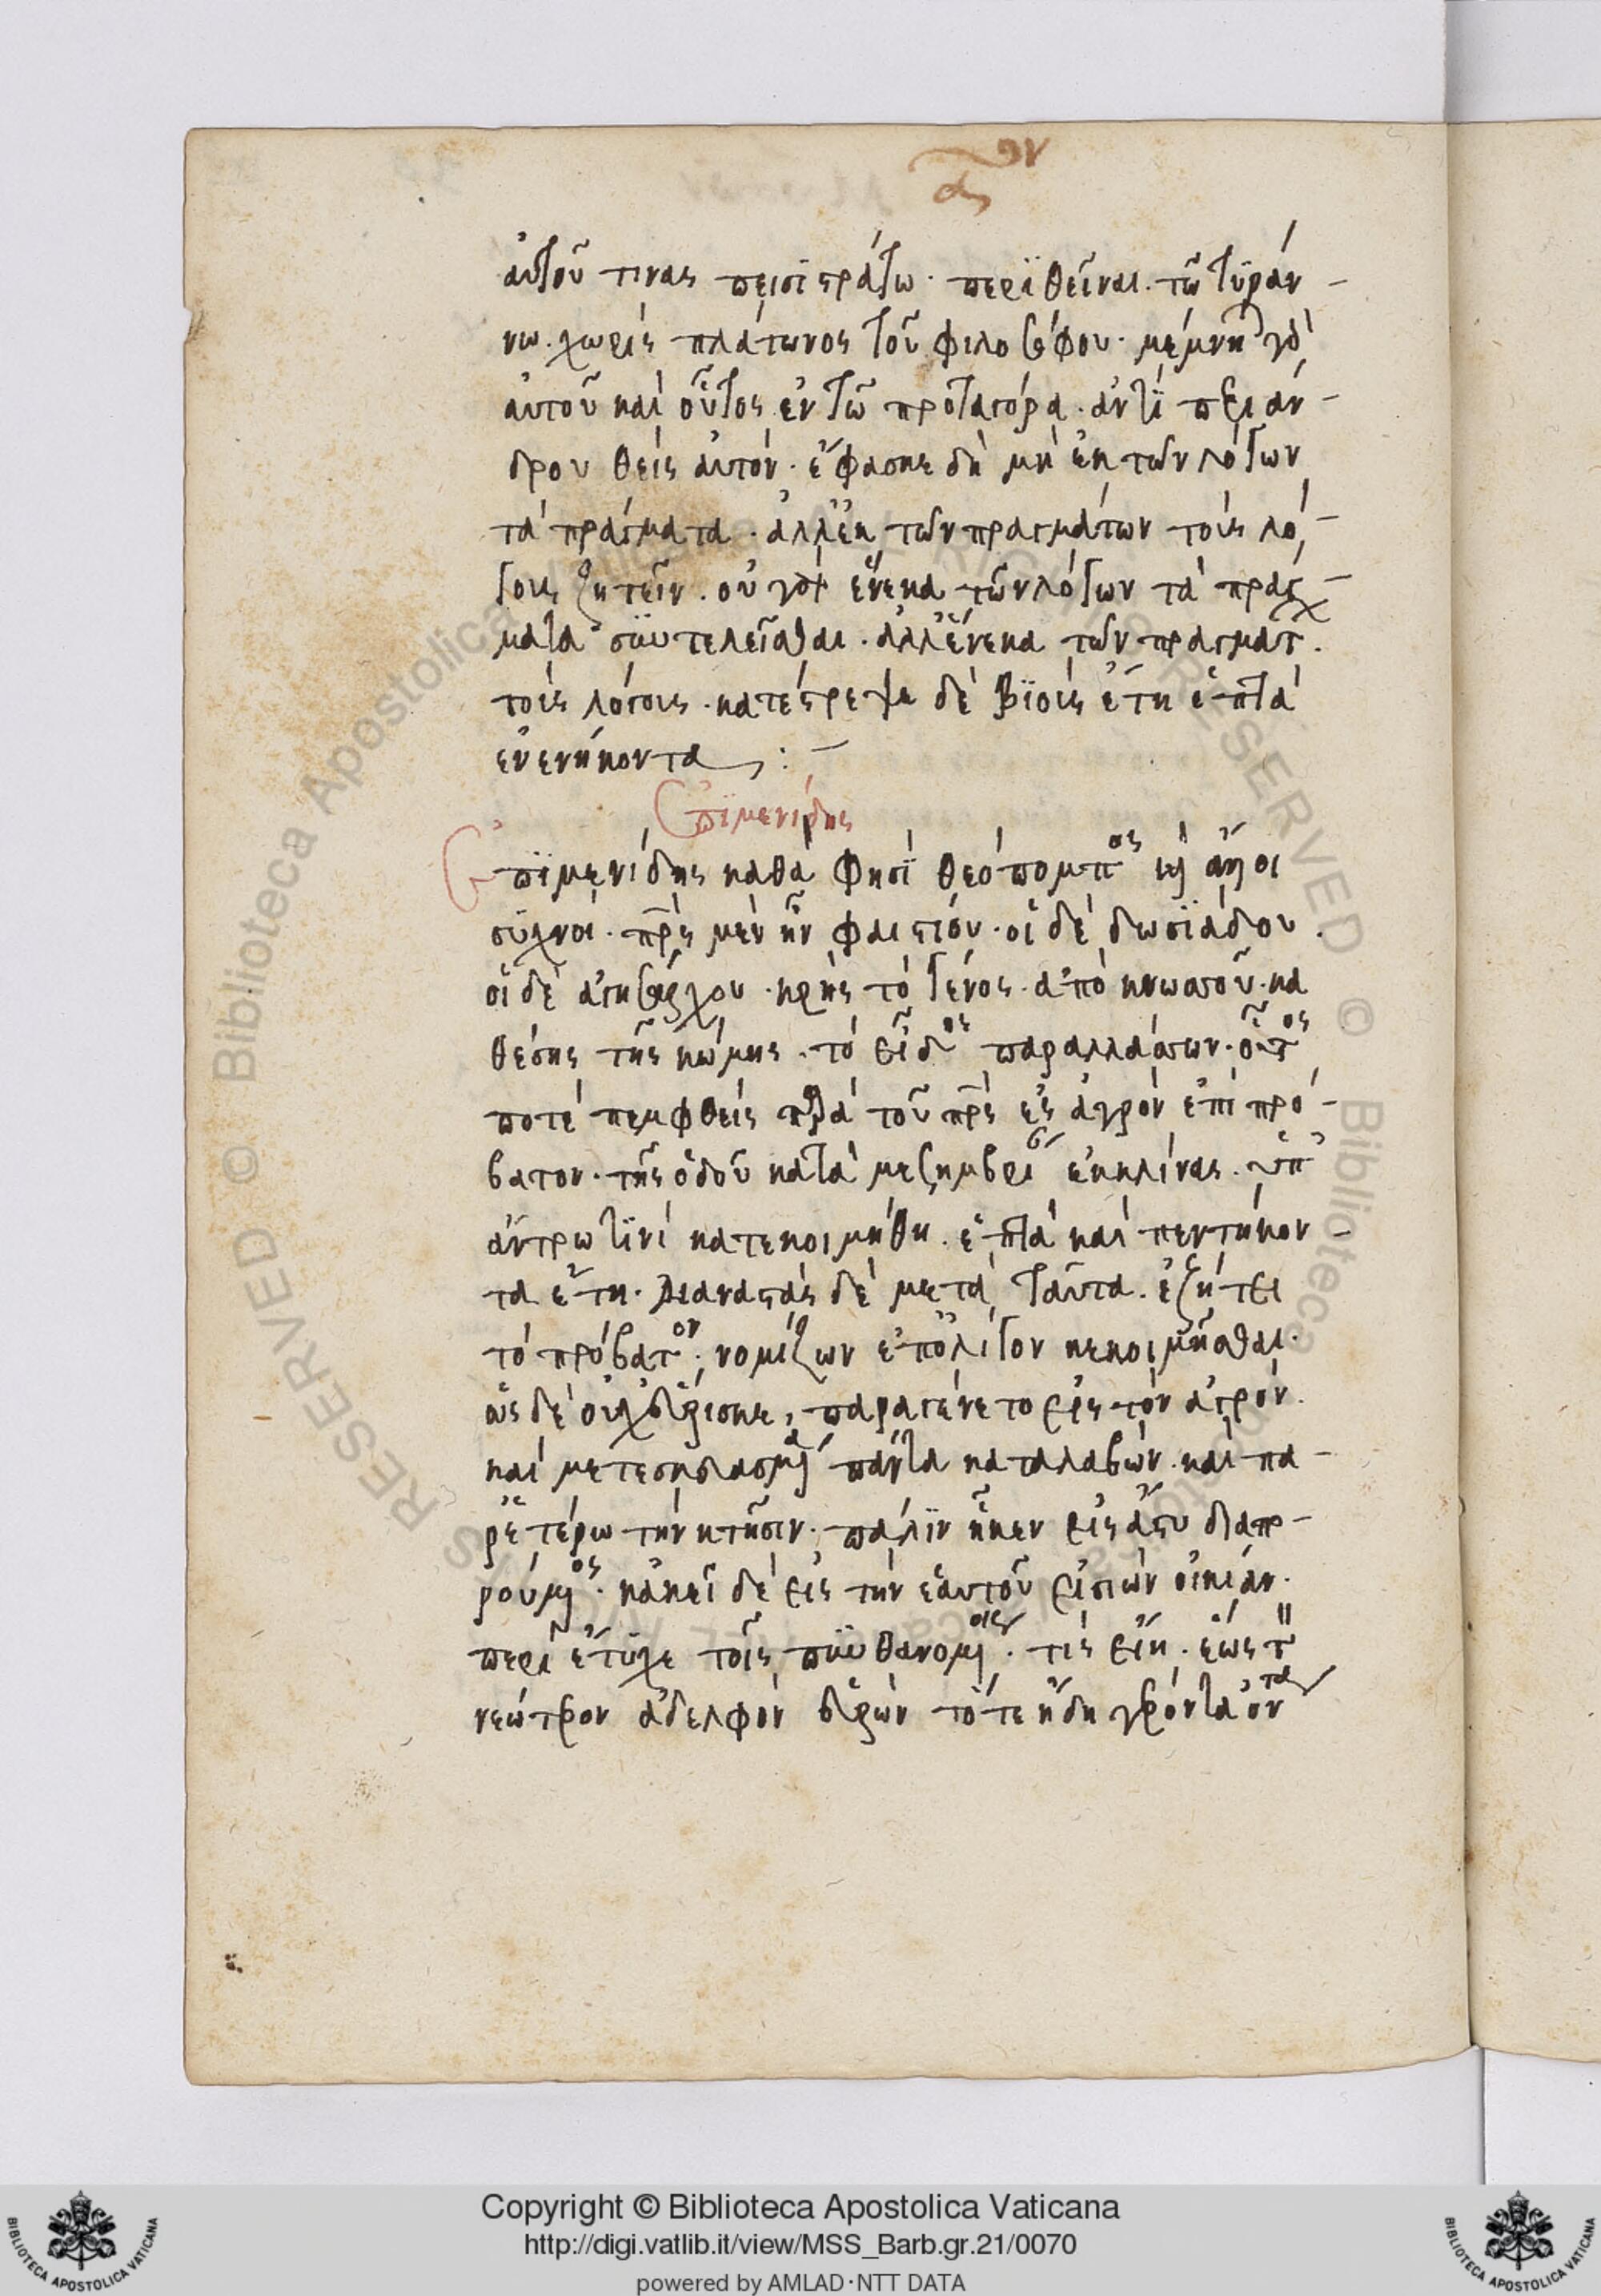 αὐτοῦ τινας πεισϊστράτω · περϊθεῖναι. τῶ τϋράν-
νω. χωρὶς πλάτωνος τοῦ φιλοσόφου · μέμνη γὰρ
αὐτοῦ καὶ οὗτος ἐν τῶ προταγόρα. ἀντϊ περιάν-
δρου θεὶς ἀυτόν · ἔφασκε δὴ μὴ ἐκ τῶν λόγων
τὰ πράγματα · ἀλλ' ἐκ τῶν πραγμάτων τοὺς λό-
γους ζητεῖν. οὐ γὰρ ἕνεκα τῶν λόγων τὰ πράγ-
ματα σϋντελεῖσθαι · ἀλλ' ἕνεκα τῶν πραγμάτ.
τοὺς λόγους. κατέστρεψε δὲ βϊοὺς ἔτη ἑπτὰ
ἐνενήκοντα : -
Ἐπϊμενίδης
Ἐπϊμενίδης καθά φησϊ θεόπομπος κὶ ἄλλοι
σϋχνοὶ · πρς μὲν ἦν φαιστίου · οἱ δὲ δωσϊάδου.
οἱ δὲ ἀγησάρχου · κρὴς τὸ γένος. ἀπὸ κνωσοῦ. κα
θέσης τῆς κώμης. τὸ εἶδος παραλλάσων. οὗτος
ποτὲ πεμφθεὶς παρὰ τοῦ πρς εἰς ἀγρὸν ἐπὶ πρό-
βατον. τῆς ὁδοῦ κατὰ μεσημβρί ἐκκλίνας. ὑπ'
ἄντρω τϊνὶ κατεκοιμήθη. ἑπτὰ καὶ πεντήκον-
τα ἔτη. διαναστὰς δὲ μετὰ ταῦτα. ἐζήτει
τὸ πρόβατον. νομίζων ἐπ' ὀλίγον κεκοιμῆσθαι.
ὡς δὲ οὐχ εὕρισκε, παραγένετο εἰς τὸν ἀγρὸν.
καὶ μετεσκευασμα πάντα καταλαβών. καὶ πα-
ρ' ἑτέρω τὴν κτῆσιν. πάλϊν ἧκεν εἰς ἄστυ διαπ-
ρούμος. κἀκεῖ δὲ εἰς τὴν ἑαυτοῦ εἰσιὼν οἰκίαν.
περὶ ἔτϋχε τοῖς πϋνθανομοις. τίς εἴη. ἕως τ
νεώτρον ἀδελφὸν εὑρὼν τότε ἤδη γέροντα ὄντα